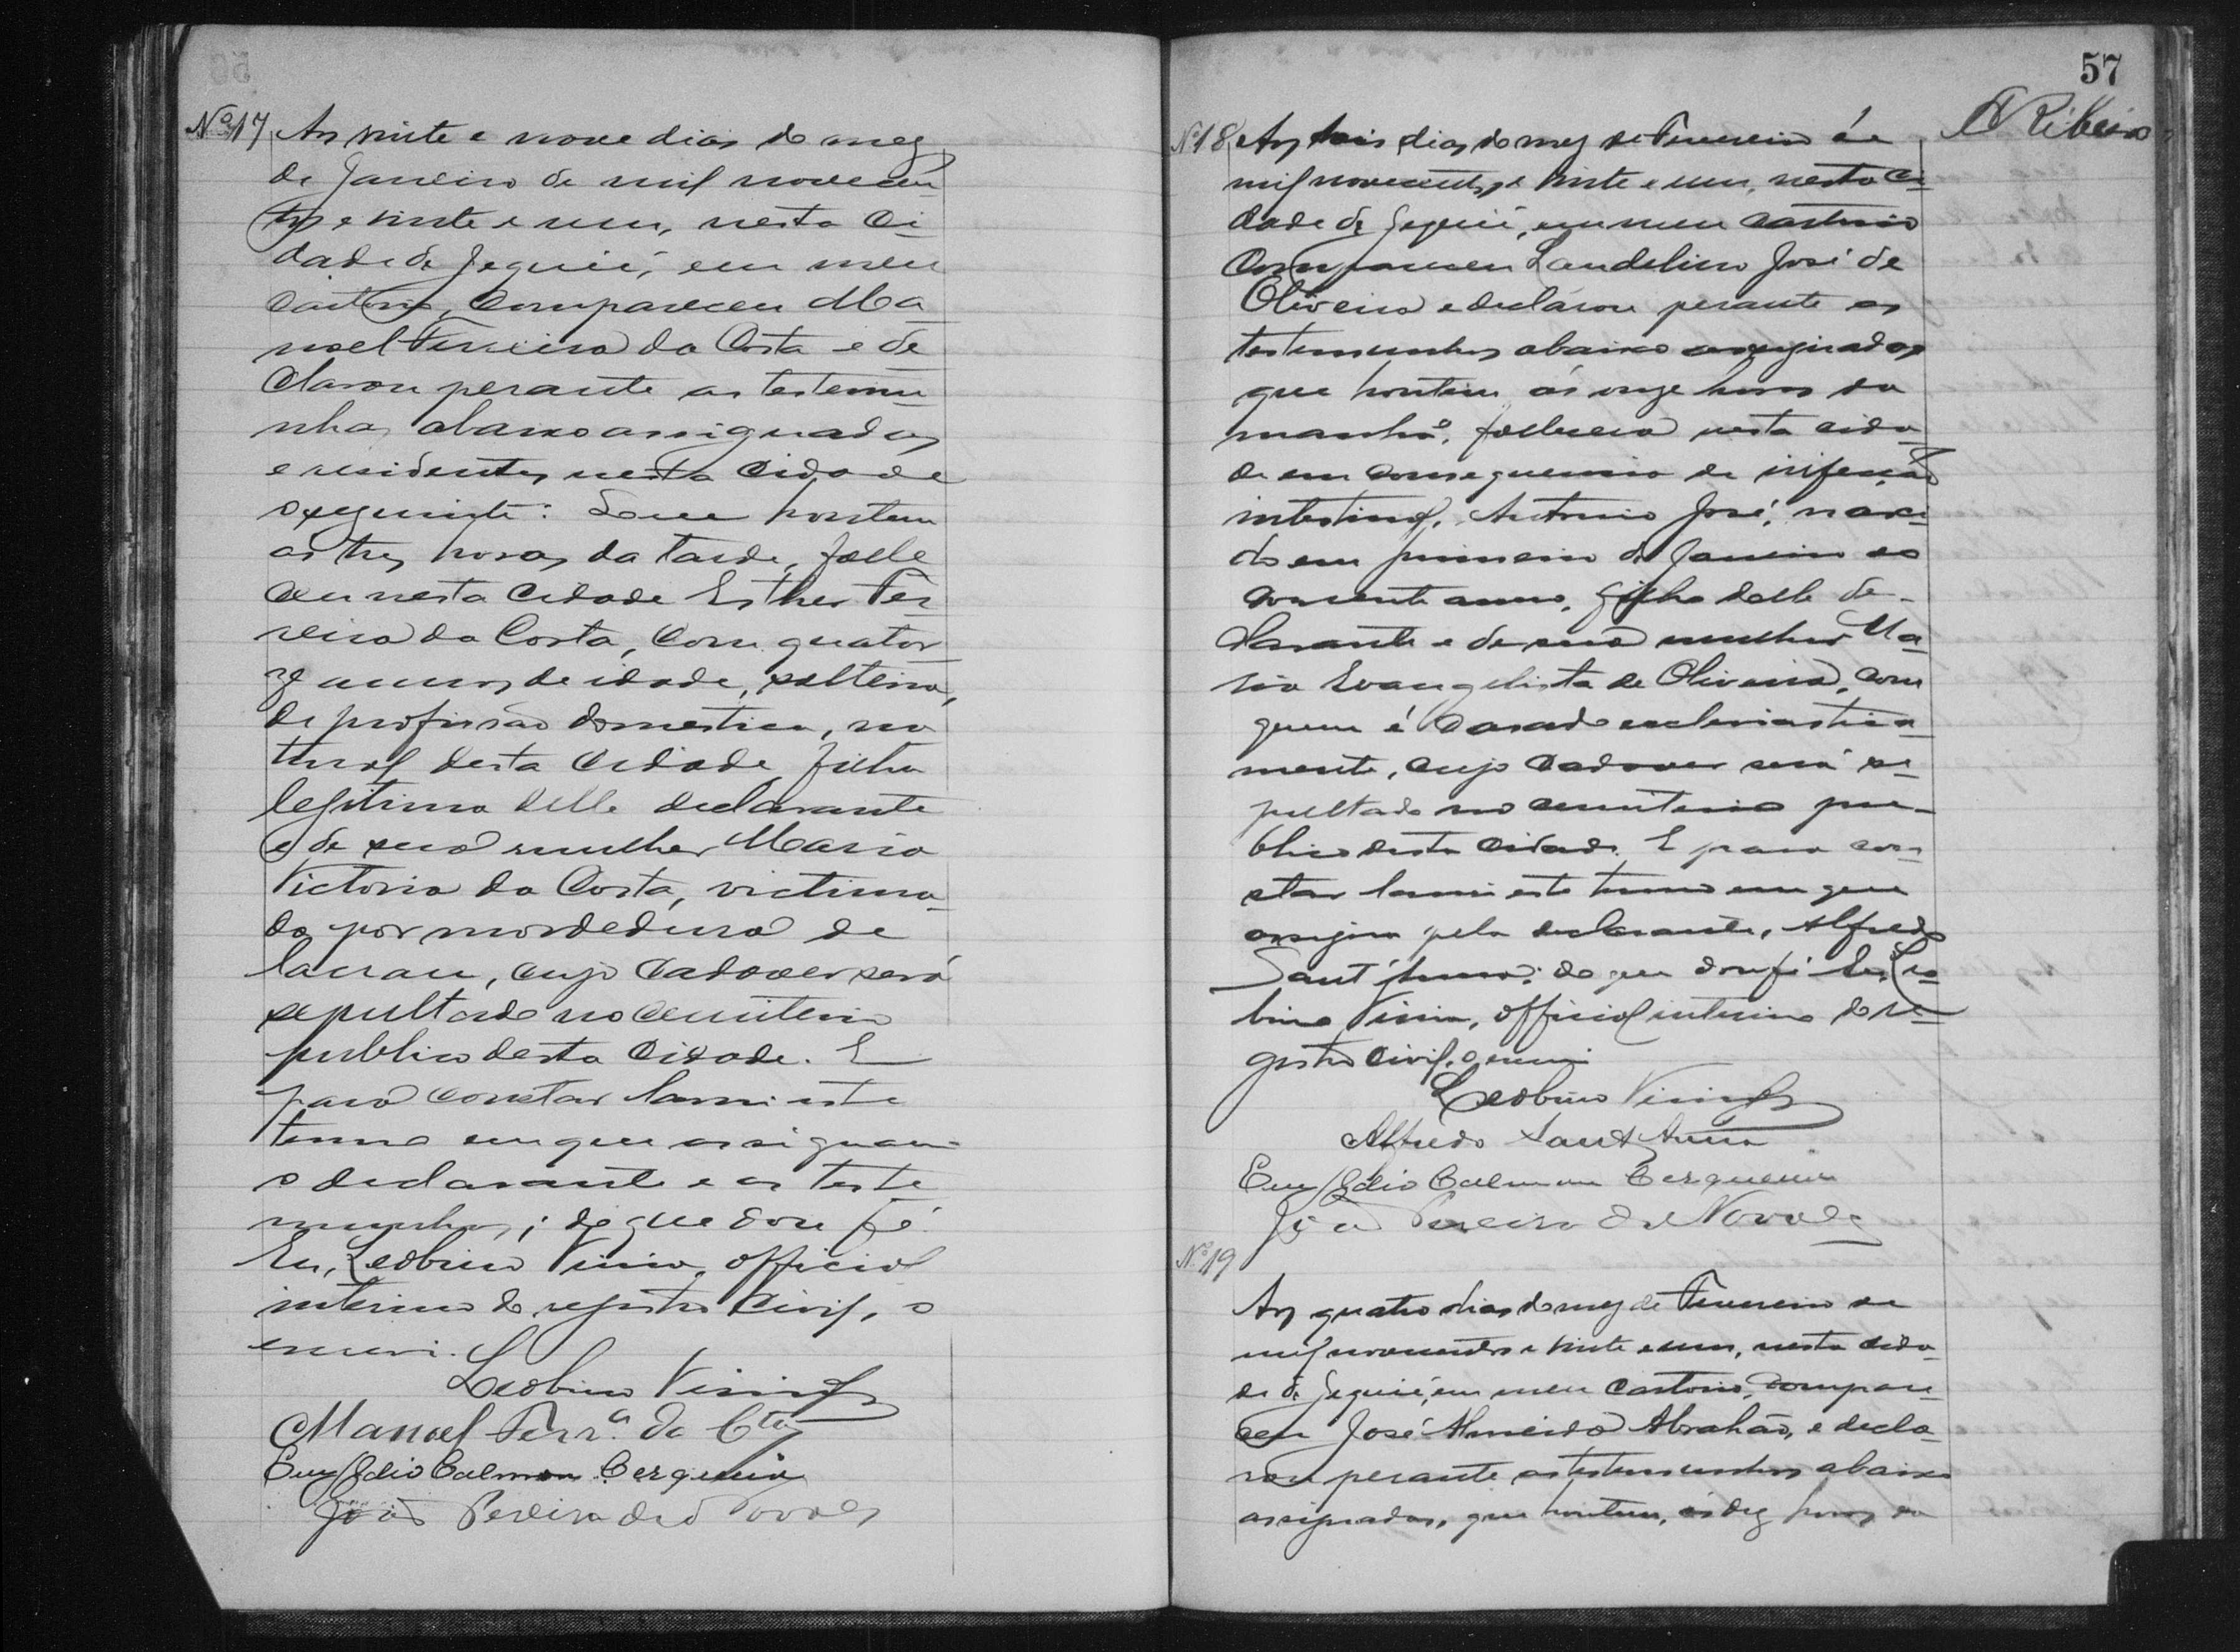 Nº 17 Aos vinte e nove dias do mez
de Janeiro de mil novecen-
tos e vinte e um, nesta Ci-
dade de Jequié, em meu
Cartorio, compareceu Ma
noel Ferreira da Costa e de
clarou perante as testemu-
nhas abaixo assignadas
e residentes nesta Cidade
o seguinte: Que hontem
ás tres horas da tarde, falle
ceu nesta Cidade Esther Fer
reira da Costa, com quator
ze annos de idade, solteira,
de profissão domestica, na
tural desta Cidade, filha
legitima delle declarante
e de sua mulher Maria
Victoria da Costa, victima-
da por mordedura de
lacrau, cujo cadaver será
sepultado no cemiterio
publico desta Cidade. E
para constar lavrei este
termo em que assignam
o declarante e as teste
munhas; do que dou fé.
Eu, Leobino Vieira, official
interino do registro Civil, o
escrevi.
Leobino Vieira
Manoel Ferrª da Cta
Emygdio Calmon Cerqueira
João Pereira de Novaes
57
A Ribeiro
Nº 18 Aos dois dias do mez de Fevereiro de
mil novecentos e vinte e um, nesta Ci-
dade de Jequié, em meu Cartorio
Compareceu Laudelino José de
Oliveira e declarou perante as
testemunhas abaixo assignadas
que hontem ás onze horas da
manhã, falleceu nesta cida-
de em consequencia de infecção
intestinal, Antonio José, nasci-
do em primeiro de Janeiro do
corrente anno, filho delle de-
clarante e de sua mulher Ma-
ria Evangelista de Oliveira, com
quem é casado ecclesiastica-
mente, cujo cadaver será se-
pultado no cemiterio pu-
blico desta Cidade. E para con-
star lavrei este termo em que
assigna pelo declarante, Alfredo
Sant'Anna; do que dou fé. Eu, Leo-
bino Vieira, official interino do re-
gistro Civil, o escrevi
Leobino Vieira
Alfredo Sant'Anna
Emygdio Calmon Cerqueira
João Pereira de Novaes
Nº 19
Aos quatro dias do mez de Fevereiro de
mil novecentos e vinte e um, nesta cida-
de de Jequié, em meu Cartorio, compare-
ceu José Almeida Abrahão, e decla-
rou perante as testemunhas abaixo
assignadas, que hontem, ás dez horas da